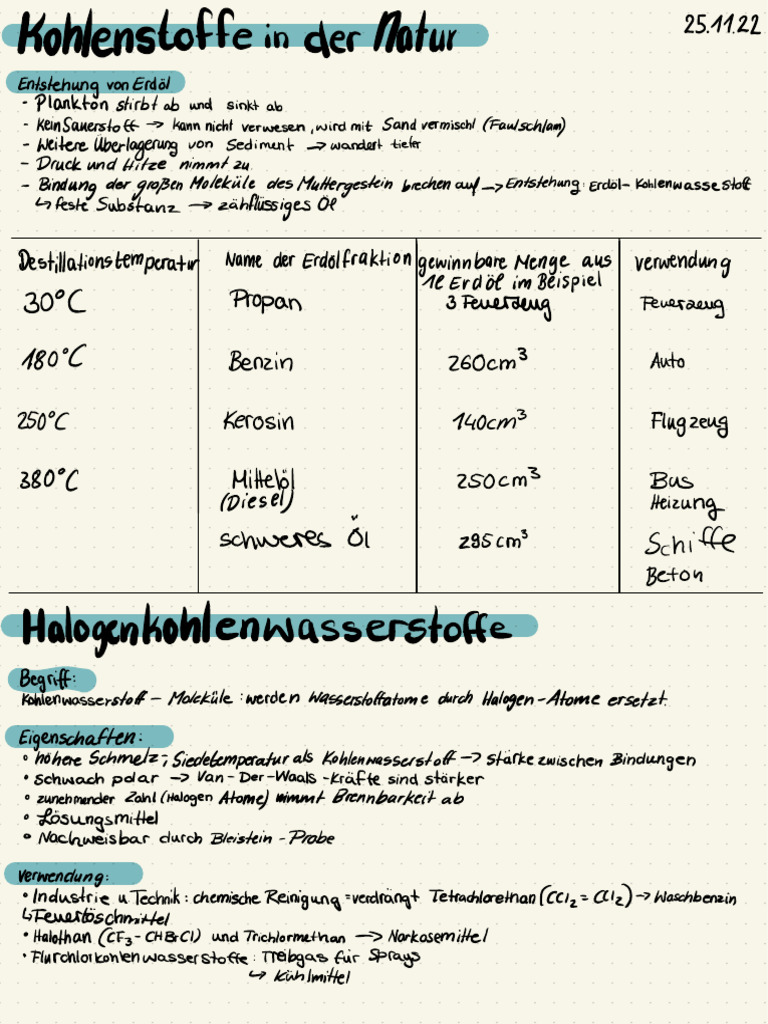 Kohlenstoffe in der Natur
25.11.22
Entstehung von Erdöl
- Plankton stirbt ab und sinkt ab
- Kein Sauerstoff → kann nicht verwesen, wird mit Sand vermischt (Faulschlam)
- Weitere Überlagerung von Sediment → wandert tiefer
- Druck und Hitze nimmt zu
- Bindung der großen Moleküle des Muttergestein brechen auf → Entstehung: Erdöl-Kohlenwasserstoff
↳ feste Substanz → zähflüssiges Öl
Destillationstemperatur Name der Erdölfraktion gewinnbare Menge aus 1l Erdöl im Beispiel verwendung
30°C Propan 3 Feuerzeug Feuerzeug
180°C Benzin 260cm³ Auto
250°C Kerosin 140cm³ Flugzeug
380°C Mittelöl (Diesel) 250cm³ Bus Heizung
schweres Öl 295cm³ Schiffe Beton
Halogenkohlenwasserstoffe
Begriff:
Kohlenwasserstoff - Moleküle: werden Wasserstoffatome durch Halogen-Atome ersetzt.
Eigenschaften:
• höhere Schmelz-; Siedetemperatur als Kohlenwasserstoff → stärke zwischen Bindungen
• schwach polar → Van-Der-Waals-Kräfte sind stärker
• zunehmender Zahl (Halogen Atome) nimmt Brennbarkeit ab
• Lösungsmittel
• Nachweisbar durch Bleistein-Probe
Verwendung:
• Industrie u Technik: chemische Reinigung = verdrängt Tetrachlorethan (CCl₂ = CCl₂) → Waschbenzin
↳ Feuerlöschmittel
• Halothan (CF₃-CHBrCl) und Trichlormethan → Narkosemittel
• Flurchlorkohlenwasserstoffe: Treibgas für Sprays
↳ Kühlmittel